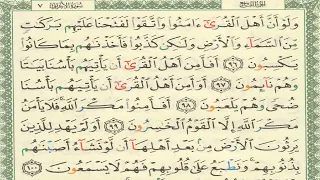 وَلَوْ أَنَّ أَهْلَ الْقُرَىٰ ءَامَنُوا وَاتَّقَوْا لَفَتَحْنَا عَلَيْهِم بَرَكَٰتٍ
مِّنَ السَّمَآءِ وَالْأَرْضِ وَلَٰكِن كَذَّبُوا فَأَخَذْنَٰهُم بِمَا كَانُوا
يَكْسِبُونَ ٩٦ أَفَأَمِنَ أَهْلُ الْقُرَىٰٓ أَن يَأْتِيَهُم بَأْسُنَا بَيَٰتًا
وَهُمْ نَآئِمُونَ ٩٧ أَوَأَمِنَ أَهْلُ الْقُرَىٰٓ أَن يَأْتِيَهُم بَأْسُنَا
ضُحًى وَهُمْ يَلْعَبُونَ ٩٨ أَفَأَمِنُوا مَكْرَ اللَّهِ فَلَا يَأْمَنُ
مَكْرَ اللَّهِ إِلَّا الْقَوْمُ الْخَٰسِرُونَ ٩٩ أَوَلَمْ يَهْدِ لِلَّذِينَ
يَرِثُونَ الْأَرْضَ مِنۢ بَعْدِ أَهْلِهَآ أَن لَّوْ نَشَآءُ أَصَبْنَٰهُم
بِذُنُوبِهِمْ وَنَطْبَعُ عَلَىٰ قُلُوبِهِمْ فَهُمْ لَا يَسْمَعُونَ ١٠٠